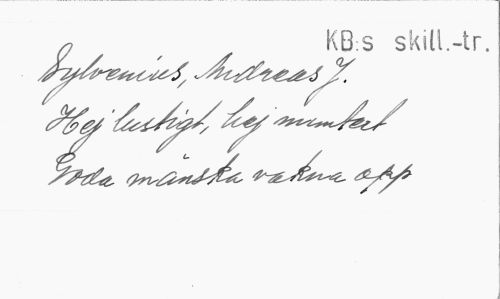 KB:s skill.-tr.
Sylvenius, Andreas J.
Hej lustigt, hej muntert
Goda mänska vakna opp